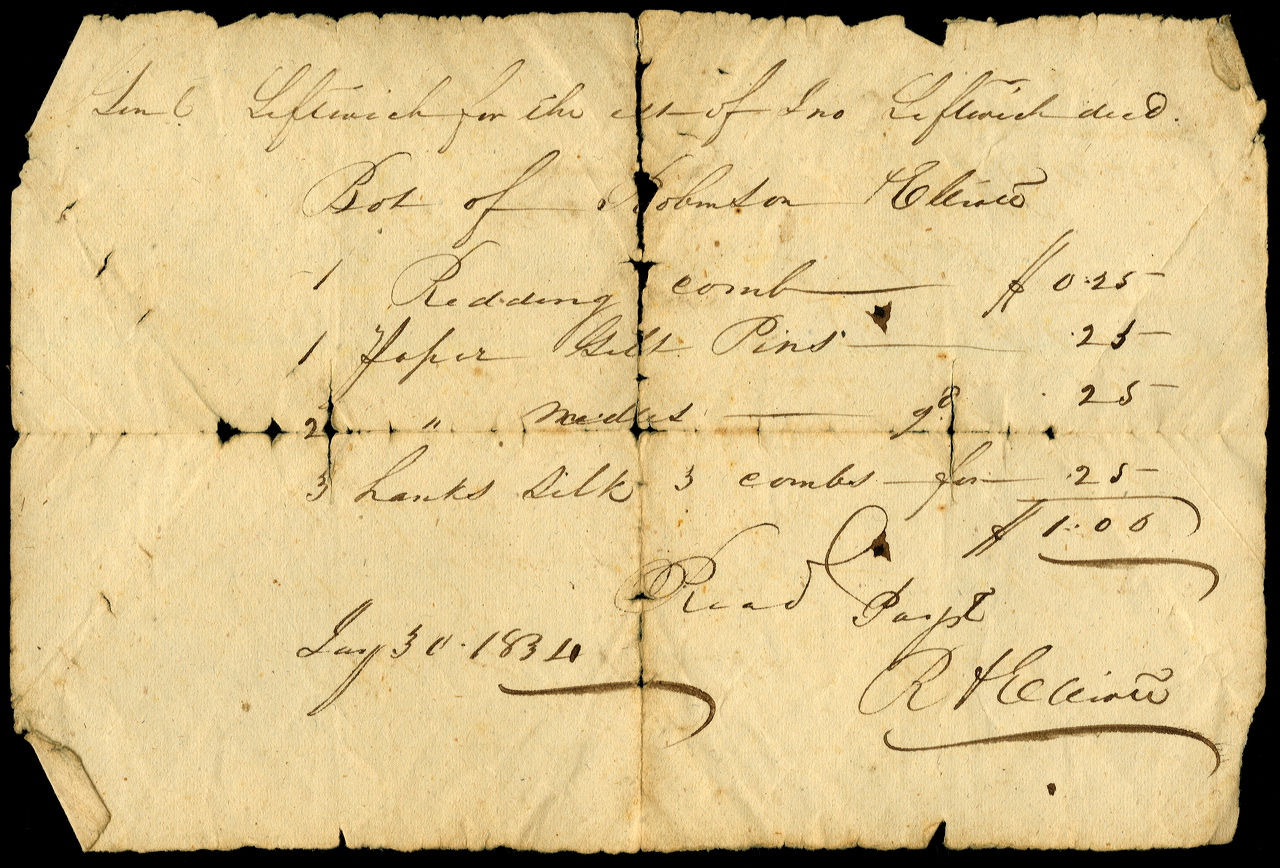 Leftwich for the est of Jno Leftwich decd.
Bot of Robinson & Elliott
1 Redding comb $ 0.25
1 Paper Gilt Pins 25
2 " Needles 9d 25
3 hanks Silk 3 combs for 25
$ 1.00
Recd Payt
Jay 30. 1834
R & Elliott